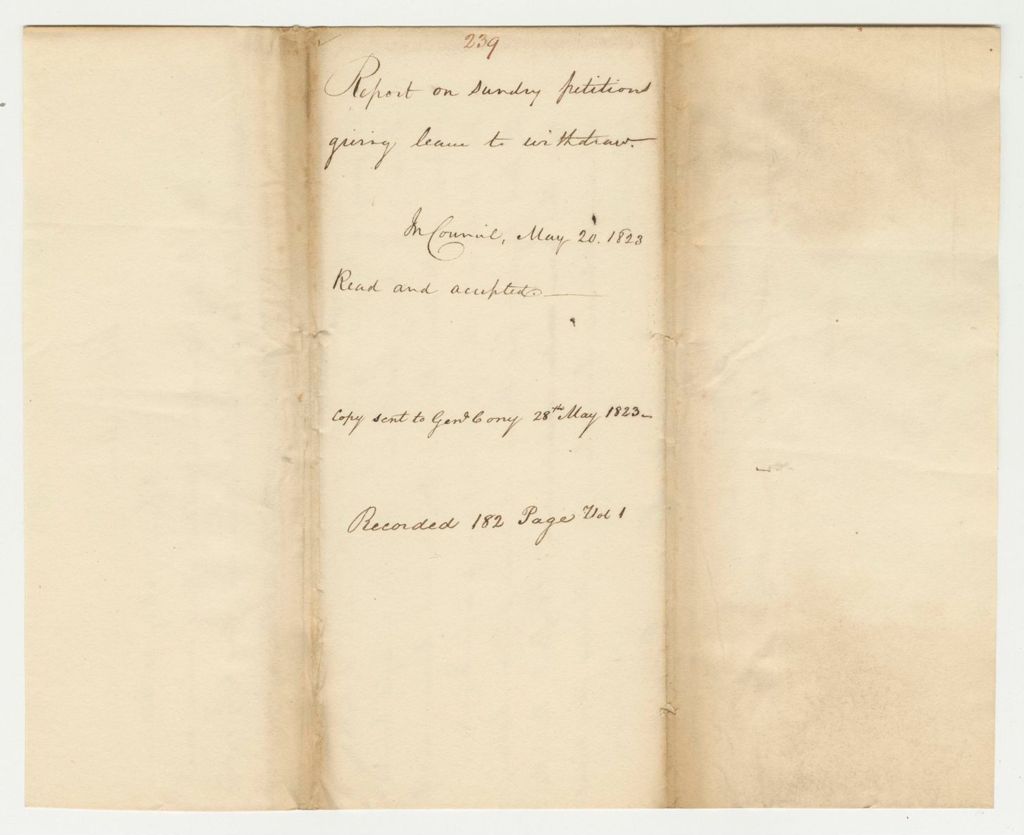 239
Report on sundry petitions
giving leave to withdraw.
In Council, May 20. 1823
Read and accepted
Copy sent to Genl Cony 28th May 1823
Recorded 182 Page Vol 1